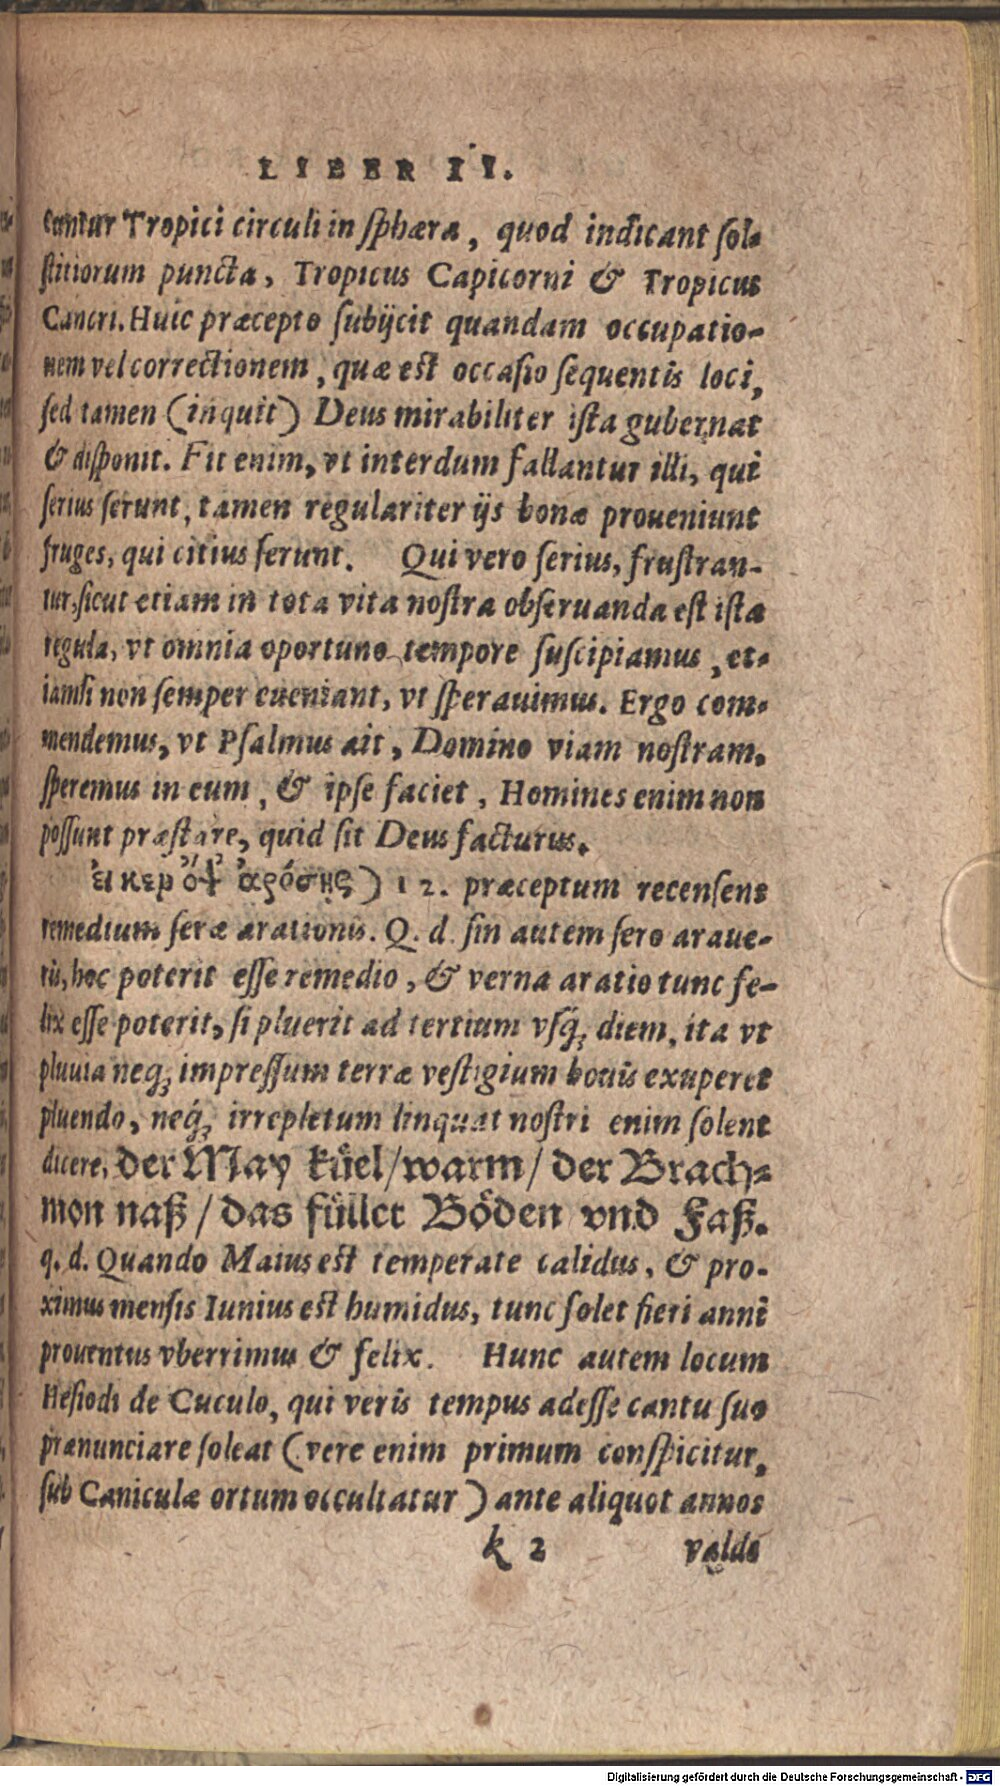 LIBER II.
cuntur Tropici circuli in sphæra, quod indicant sol-
stitiorum puncta, Tropicus Capicorni & Tropicus
Cancri. Huic præcepto subijcit quandam occupatio-
nem vel correctionem, quæ est occasio sequentis loci,
sed tamen (inquit) Deus mirabiliter ista gubernat
& disponit. Fit enim, vt interdum fallantur illi, qui
serius serunt, tamen regulariter ijs bonæ proueniunt
fruges, qui citius serunt. Qui vero serius, frustran-
tur, sicut etiam in tota vita nostra obseruanda est ista
regula, vt omnia oportuno tempore suscipiamus, et-
iamsi non semper eueniant, vt sperauimus. Ergo com-
mendemus, vt Psalmus ait, Domino viam nostram,
speremus in eum, & ipse faciet, Homines enim non
possunt præstare, quid sit Deus facturus.
ἐι κεν ὄψ' ἀρόσῃς) 12. præceptum recensens
remedium seræ arationis. Q. d. sin autem sero araue-
ris, hoc poterit esse remedio, & verna aratio tunc fe-
lix esse poterit, si pluerit ad tertium vsq; diem, ita vt
pluuia neq; impressum terræ vestigium bouis exuperet
pluendo, neq; irrepletum linquat nostri enim solent
dicere, der May kůel/warm/ der Brach-
mon naß/ das füllet Böden vnd Faß.
q. d. Quando Maius est temperate calidus, & pro-
ximus mensis Iunius est humidus, tunc solet fieri anni
prouentus vberrimus & felix. Hunc autem locum
Hesiodi de Cuculo, qui veris tempus adesse cantu suo
prænunciare soleat (vere enim primum conspicitur,
sub Caniculæ ortum occultatur) ante aliquot annos
k 2 valde
Digitalisierung gefördert durch die Deutsche Forschungsgemeinschaft - DFG